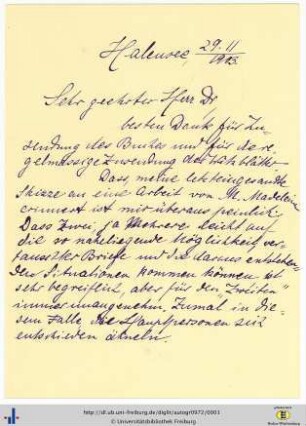 Halensee, 29.11
1903
Sehr geehrter Herr Dr
besten Dank für Zu-
sendung des Buches und für die re-
gelmässige Zuwendung der
Dass meine letzteingesandte
Skizze an eine Arbeit von M. Madeleine
erinnert ist mir überaus peinlich.
Dass Zwei, ja Mehrere leicht auf
die so naheliegende Möglichkeit ver-
tauschter Briefe und die daraus entstehen-
den Situationen kommen können ist
sehr begreiflich, aber für den "Zweiten"
immer unangenehm, zumal in die-
sem Falle die Hauptpersonen sich
entschieden ähneln.
http://dl.ub.uni-freiburg.de/diglit/autogr0972/0003
© Universitätsbibliothek Freiburg